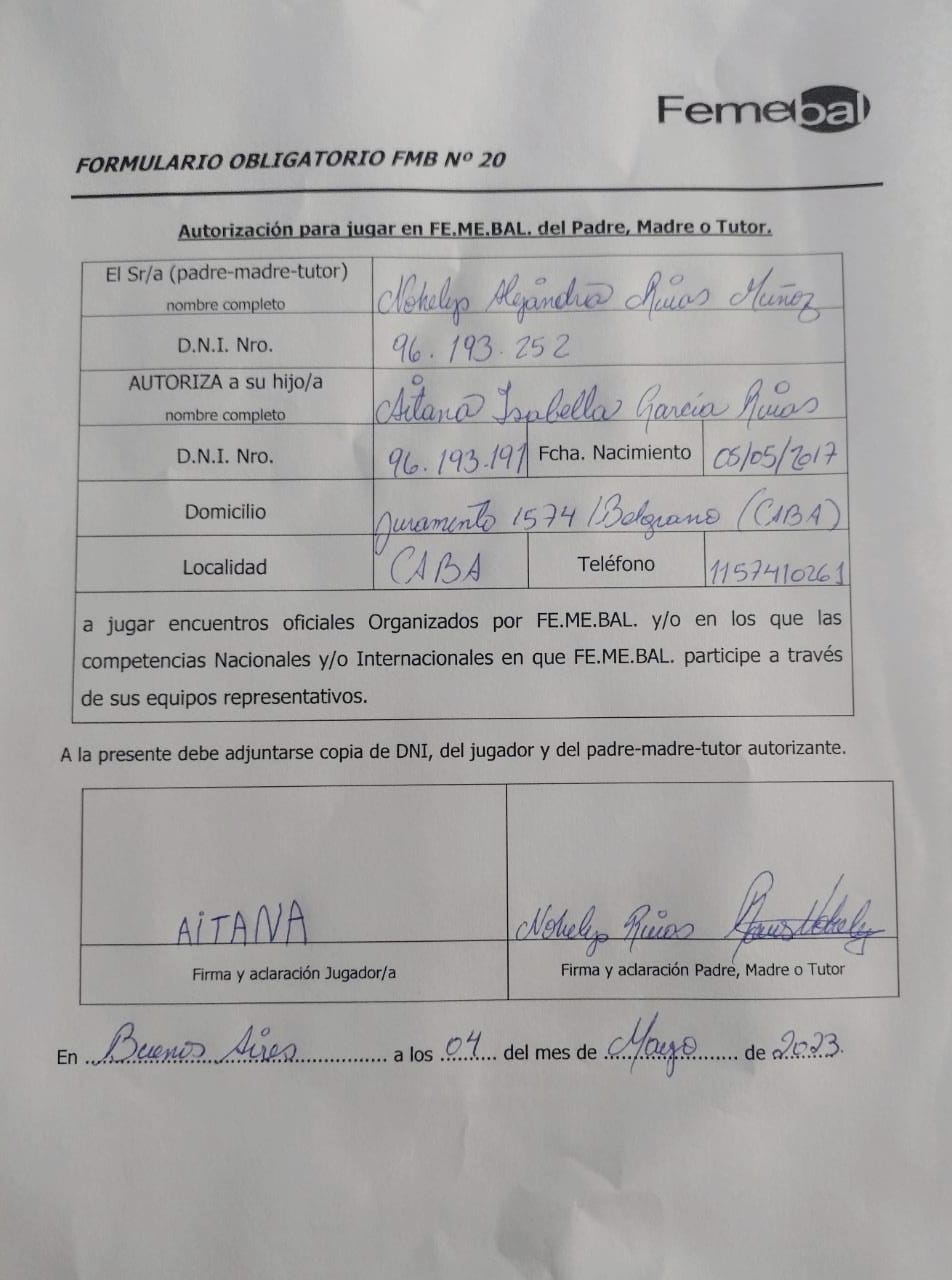 Femebal
FORMULARIO OBLIGATORIO FMB Nº 20
Autorización para jugar en FE.ME.BAL. del Padre, Madre o Tutor.
El Sr/a (padre-madre-tutor)
nombre completo
Nohelys Alejandra Rivas Muñoz
D.N.I. Nro.
96.193.252
AUTORIZA a su hijo/a
nombre completo
Aitana Isabella García Rivas
D.N.I. Nro.
96.193.191
Fcha. Nacimiento
05/05/2017
Domicilio
Juramento 1574 / Belgrano (CABA)
Localidad
CABA
Teléfono
1157410261
a jugar encuentros oficiales Organizados por FE.ME.BAL. y/o en los que las
competencias Nacionales y/o Internacionales en que FE.ME.BAL. participe a través
de sus equipos representativos.
A la presente debe adjuntarse copia de DNI, del jugador y del padre-madre-tutor autorizante.
AiTANA
Nohelys Rivas
Firma y aclaración Jugador/a
Firma y aclaración Padre, Madre o Tutor
En Buenos Aires a los 04 del mes de Mayo de 2023.